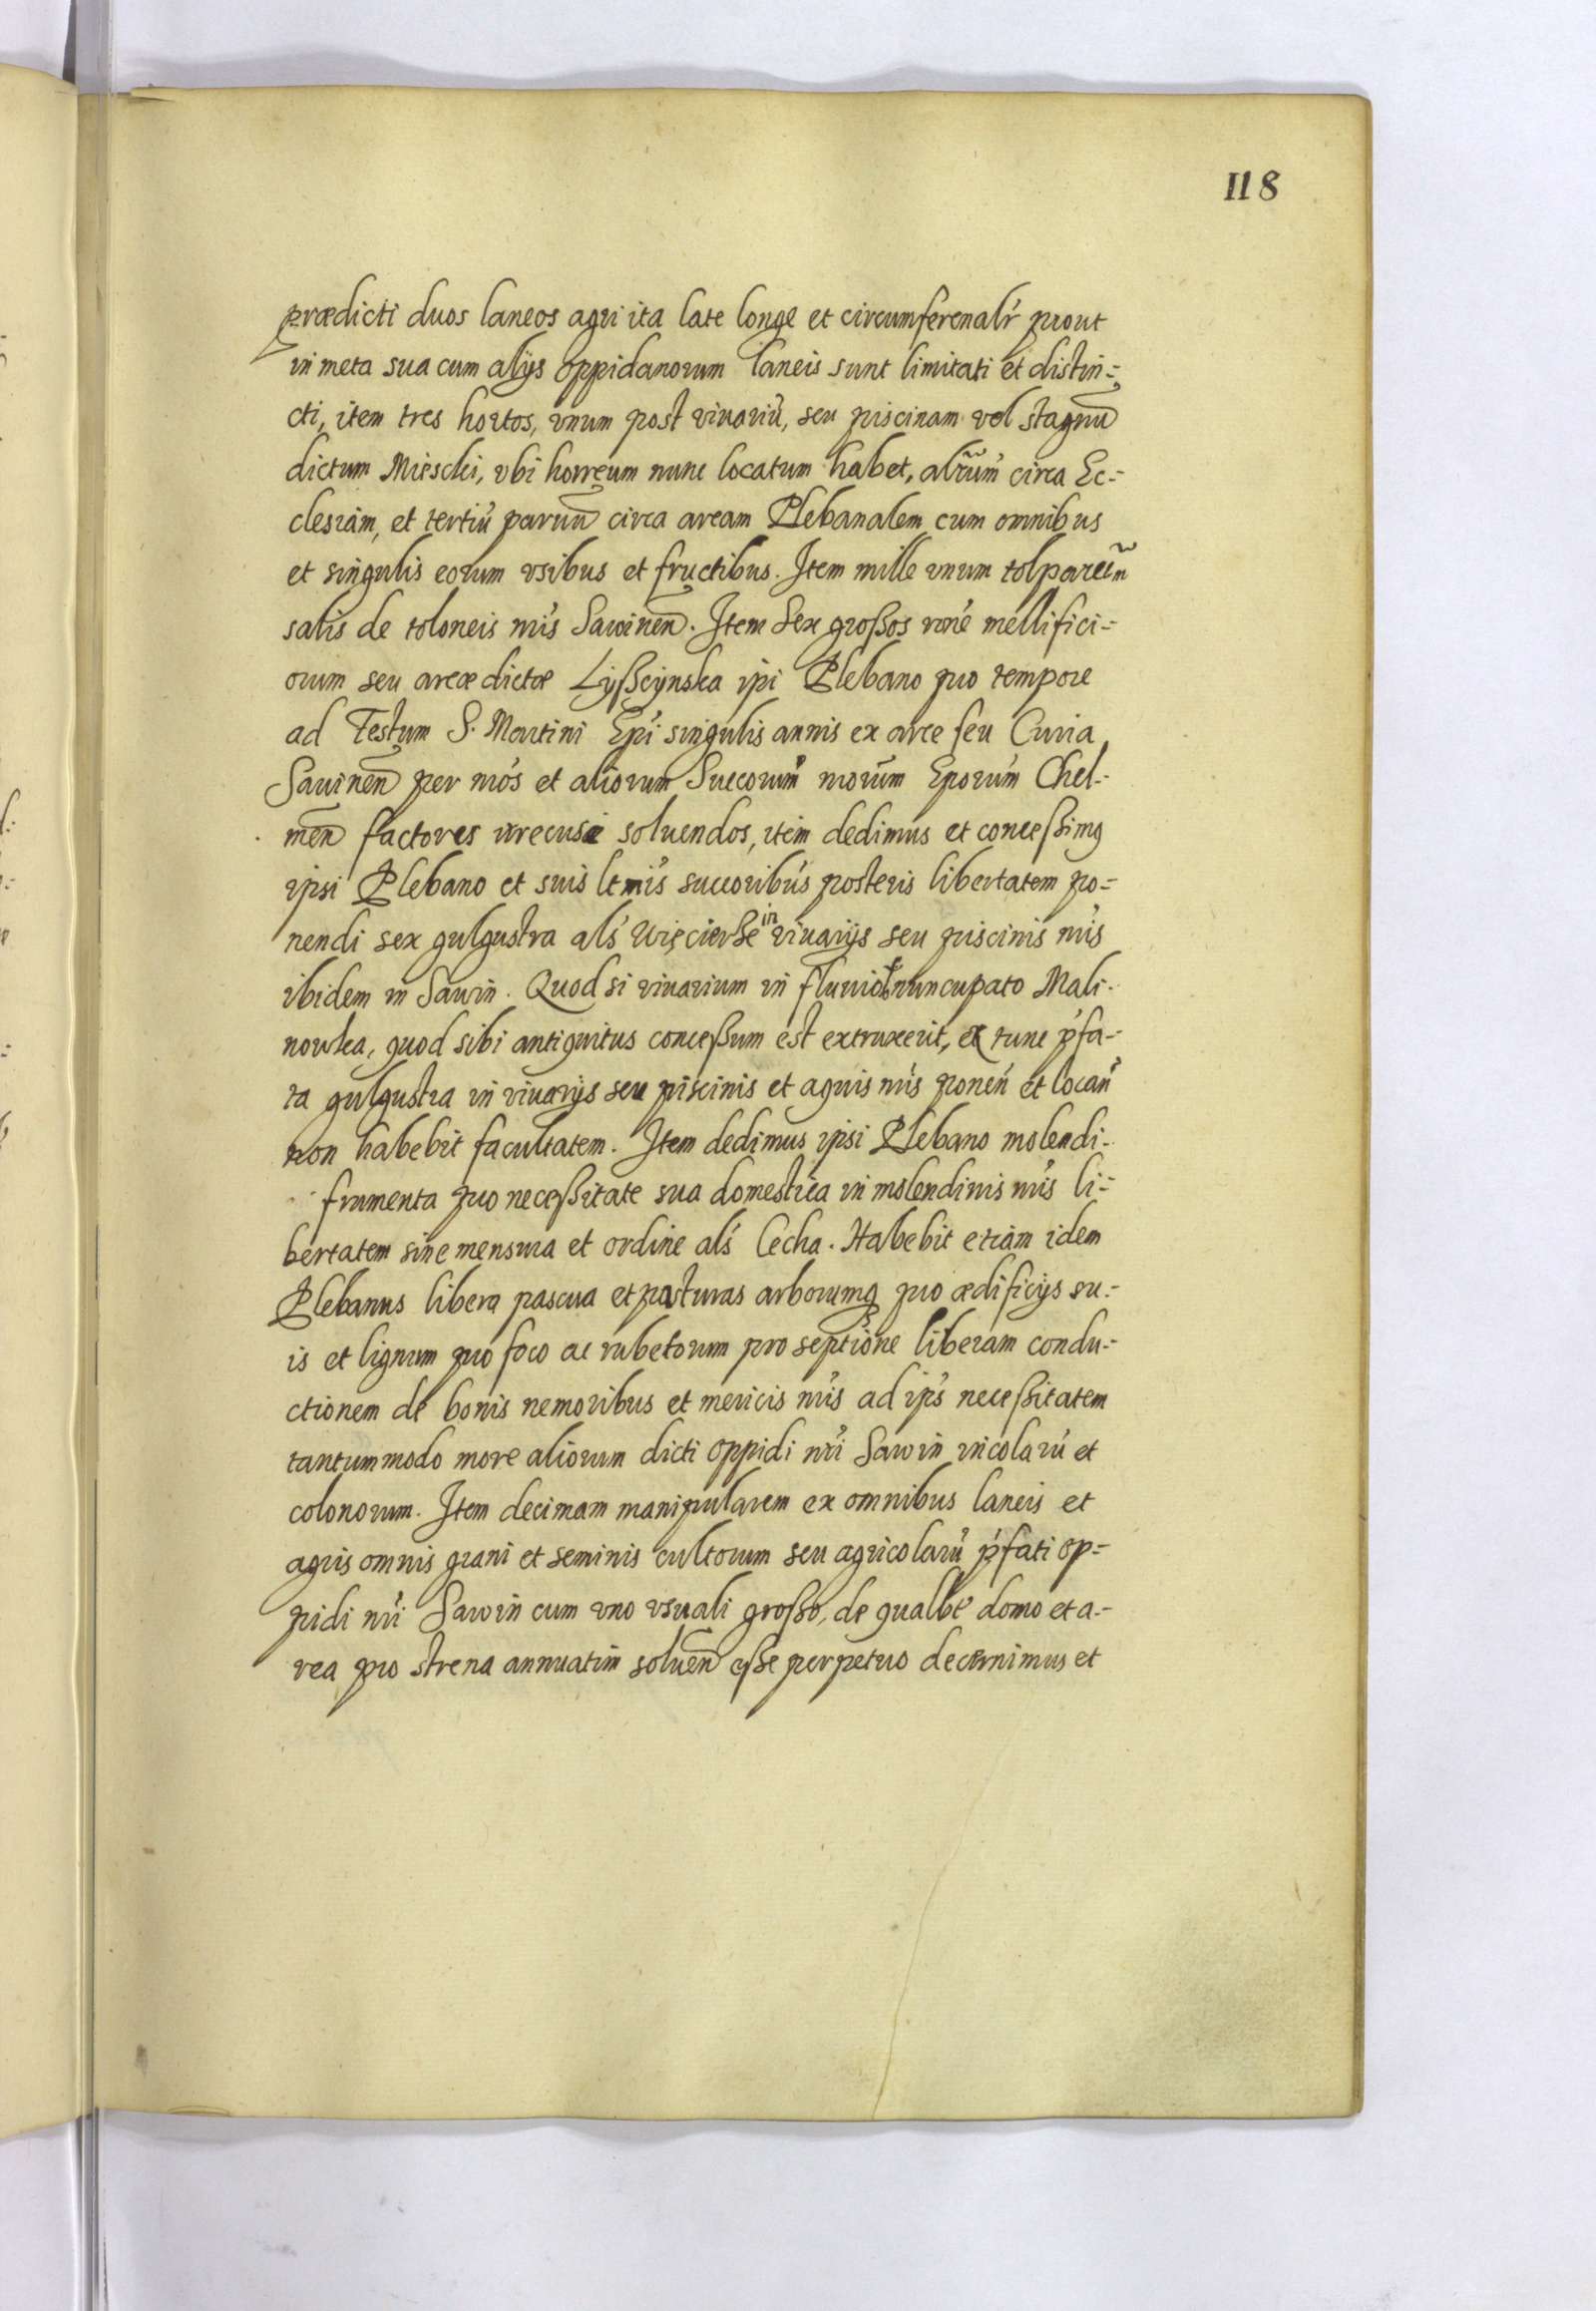 118
prædicti duos laneos agri ita late longe et circumferenalr̃ prout
in meta sua cum alijs oppidanorum laneis sunt limitati et distin=
cti, item tres hortos, vnum post viuariũ, seu piscinam vel stagnũ
dictum Miescki, vbi horreum nunc locatum habet, alr̃um circa Ec=
clesiam, et tertiũ paruũ circa aream Plebanalem cum omnibus
et singulis eorum vsibus et fructibus. Item mille vnum tolparũm
salis de toloneis nr̃is Sawineñ. Item sex großos rõne mellifici=
orum seu areæ dictæ Lyßcynska ipi Plebano pro tempore
ad Festum S. Martini Epĩ singulis annis ex arce seu Curia
Sawineñ per nr̃os et aliorum Succorum̃ nr̃orum Eporum̃ Chel=
meñ factores irrecusæ soluendos, item dedimus et conceßimq
ipsi Plebano et suis ltmĩs succoribũs posteris libertatem po=
nendi sex gulgustra alš Więcierße in viuarijs seu piscinis nr̃is
ibidem in Sawin. Quod si viuarium in fluuio nuncupato Mali=
nowka, quod sibi antiquitus conceßum est extruxerit, ex tunc p̃fa=
ta gulgustra in viuarijs seu piscinis et aquis nr̃is poneñ et locañ
non habebit facultatem. Item dedimus ipsi Plebano molendi=
frumenta pro neceßitate sua domestica in molendinis nr̃is li=
bertatem sine mensura et ordine alš Cecha. Habebit etiam idem
Plebanus libera pascua et pasturas arborumq pro ædificijs su=
is et lignum pro foco ac rubetorum pro septione liberam condu=
ctionem de bonis nemoribus et mericis nr̃is ad ip̃s neceßitatem
tantummodo more aliorum dicti oppidi nr̃i Sawin incolarũ et
colonorum. Item decimam manipularem ex omnibus laneis et
agris omnis grani et seminis cultorum seu agricolarũ p̃fati op=
pidi nr̃i Sawin cum vno vsuali großo, de qualbt̃ domo et a=
rea pro strena annuatim solueñ eße perpetuo decernimus et